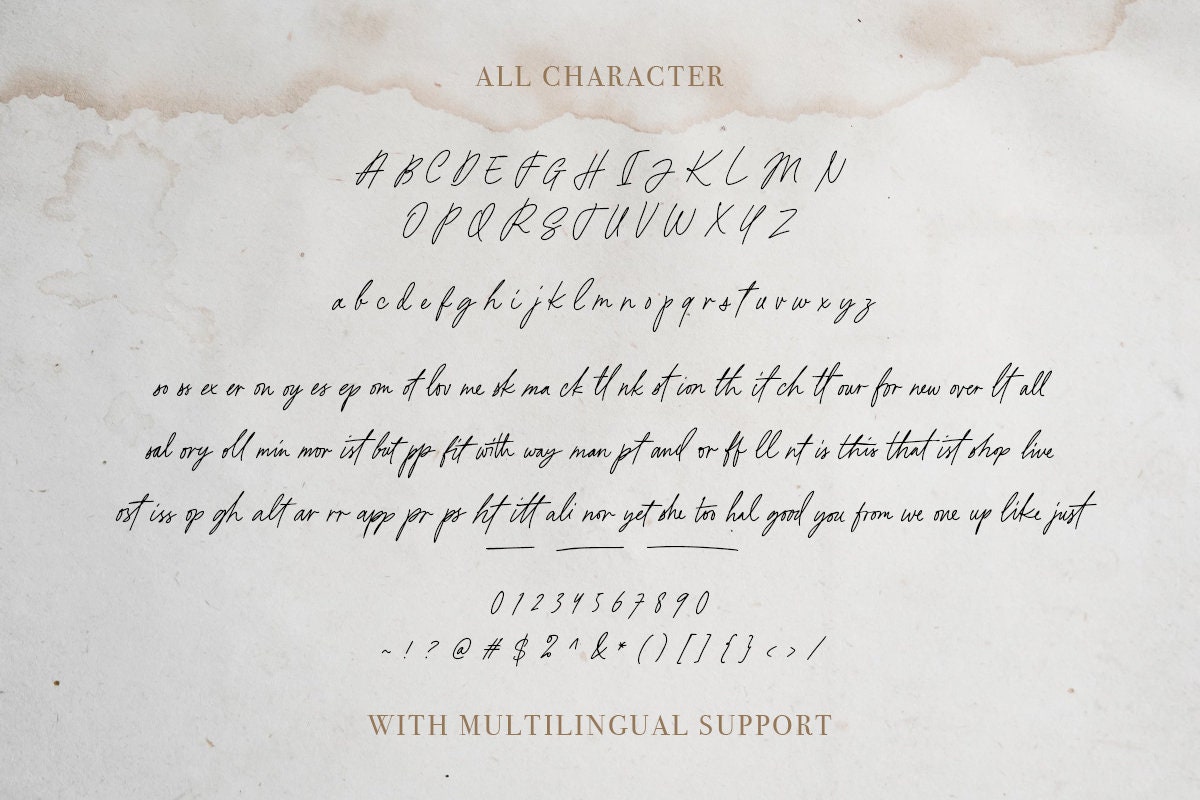 ALL CHARACTER
A B C D E F G H I J K L M N
O P Q R S T U V W X Y Z
a b c d e f g h i j k l m n o p q r s t u v w x y z
so ss ex er on oy es ep om ot lov me sk ma ck tl nk st ion th it ch tt our for new over lt all
sal ory oll min mor ist but pp fit with way man pt and or ff ll nt is this that ist shop live
ost iss op gh alt ar rr app pr ps ht itt ali nor yet she too hal good you from we one up like just
0 1 2 3 4 5 6 7 8 9 0
~ ! ? @ # $ % ^ & * ( ) [ ] { } < > /
WITH MULTILINGUAL SUPPORT